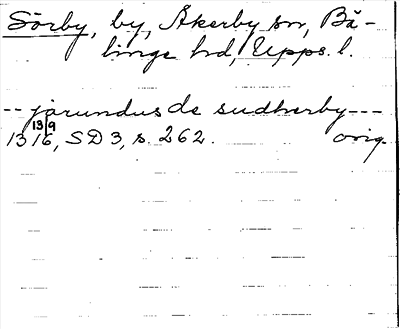 Sörby, by, Åkerby sn, Bä-
linge hd, Upps. l.
-- jarundus de sudherby ---
13 13/9 16, SD 3, s. 262. orig.